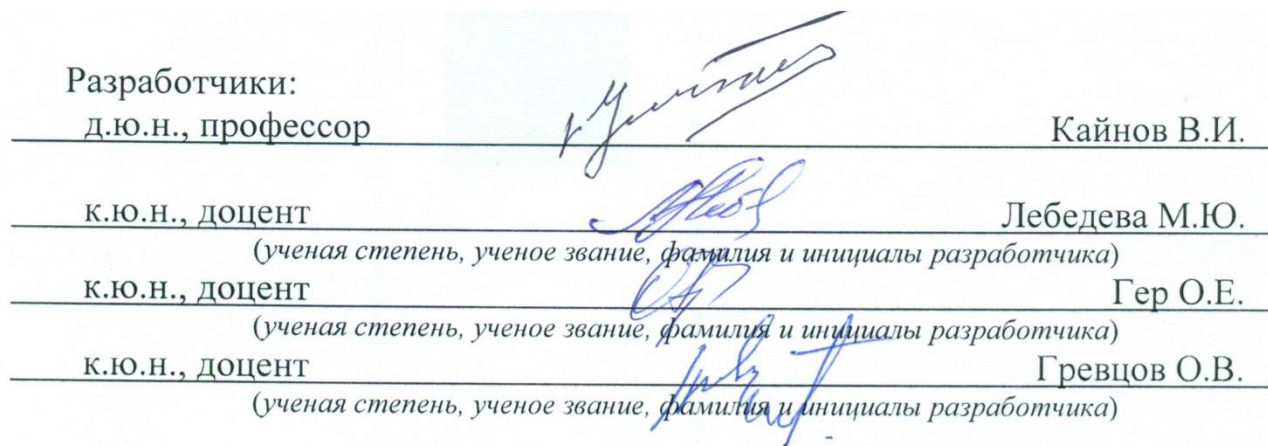 Разработчики:
д.ю.н., профессор Кайнов В.И.
к.ю.н., доцент Лебедева М.Ю.
(ученая степень, ученое звание, фамилия и инициалы разработчика)
к.ю.н., доцент Гер О.Е.
(ученая степень, ученое звание, фамилия и инициалы разработчика)
к.ю.н., доцент Гревцов О.В.
(ученая степень, ученое звание, фамилия и инициалы разработчика)